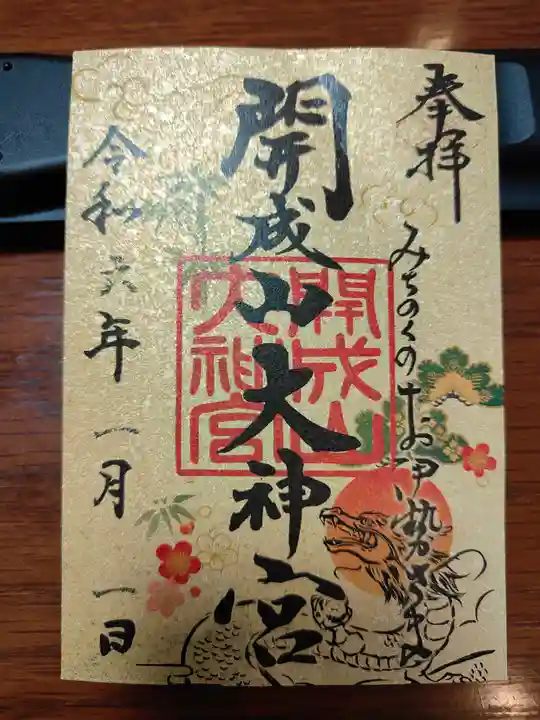 奉拝
みちのくのお伊勢さま
開成山大神宮
開成山
大神宮
令和六年一月一日